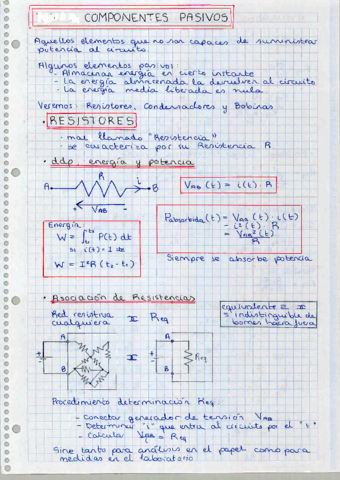 COMPONENTES PASIVOS
Aquellos elementos que no son capaces de suministrar
potencia al circuito.
Algunos elementos pasivos:
- Almacenan energía en cierto instante
- La energía almacenada la devuelven al circuito
- La energía media liberada es nula
Veremos: Resistores, Condensadores y Bobinas.
• RESISTORES
- mal llamado "Resistencia"
- se caracteriza por su Resistencia R
• ddp, energía y potencia
R i
A B
+ VAB -
VAB (t) = i(t) · R
Energía
W = ∫ P(t) dt
si i(t) = I
W = I²R (t₂ - t₁)
Pabsorbida (t) = VAB (t) · i(t)
= i²(t) · R
= VAB²(t) / R
Siempre se absorbe potencia
• Asociación de Resistencias
Red resistiva
cualquiera ≡ Req
equivalente ≡
= indistinguible de
bornes hacia fuera
A B ≡ A B Req
Procedimiento determinación Req
- Conectar generador de tensión VAB
- Determinar "i" que entra al circuito por el "+"
- Calcular VAB = Req
Sirve tanto para análisis en el papel como para
medidas en el laboratorio